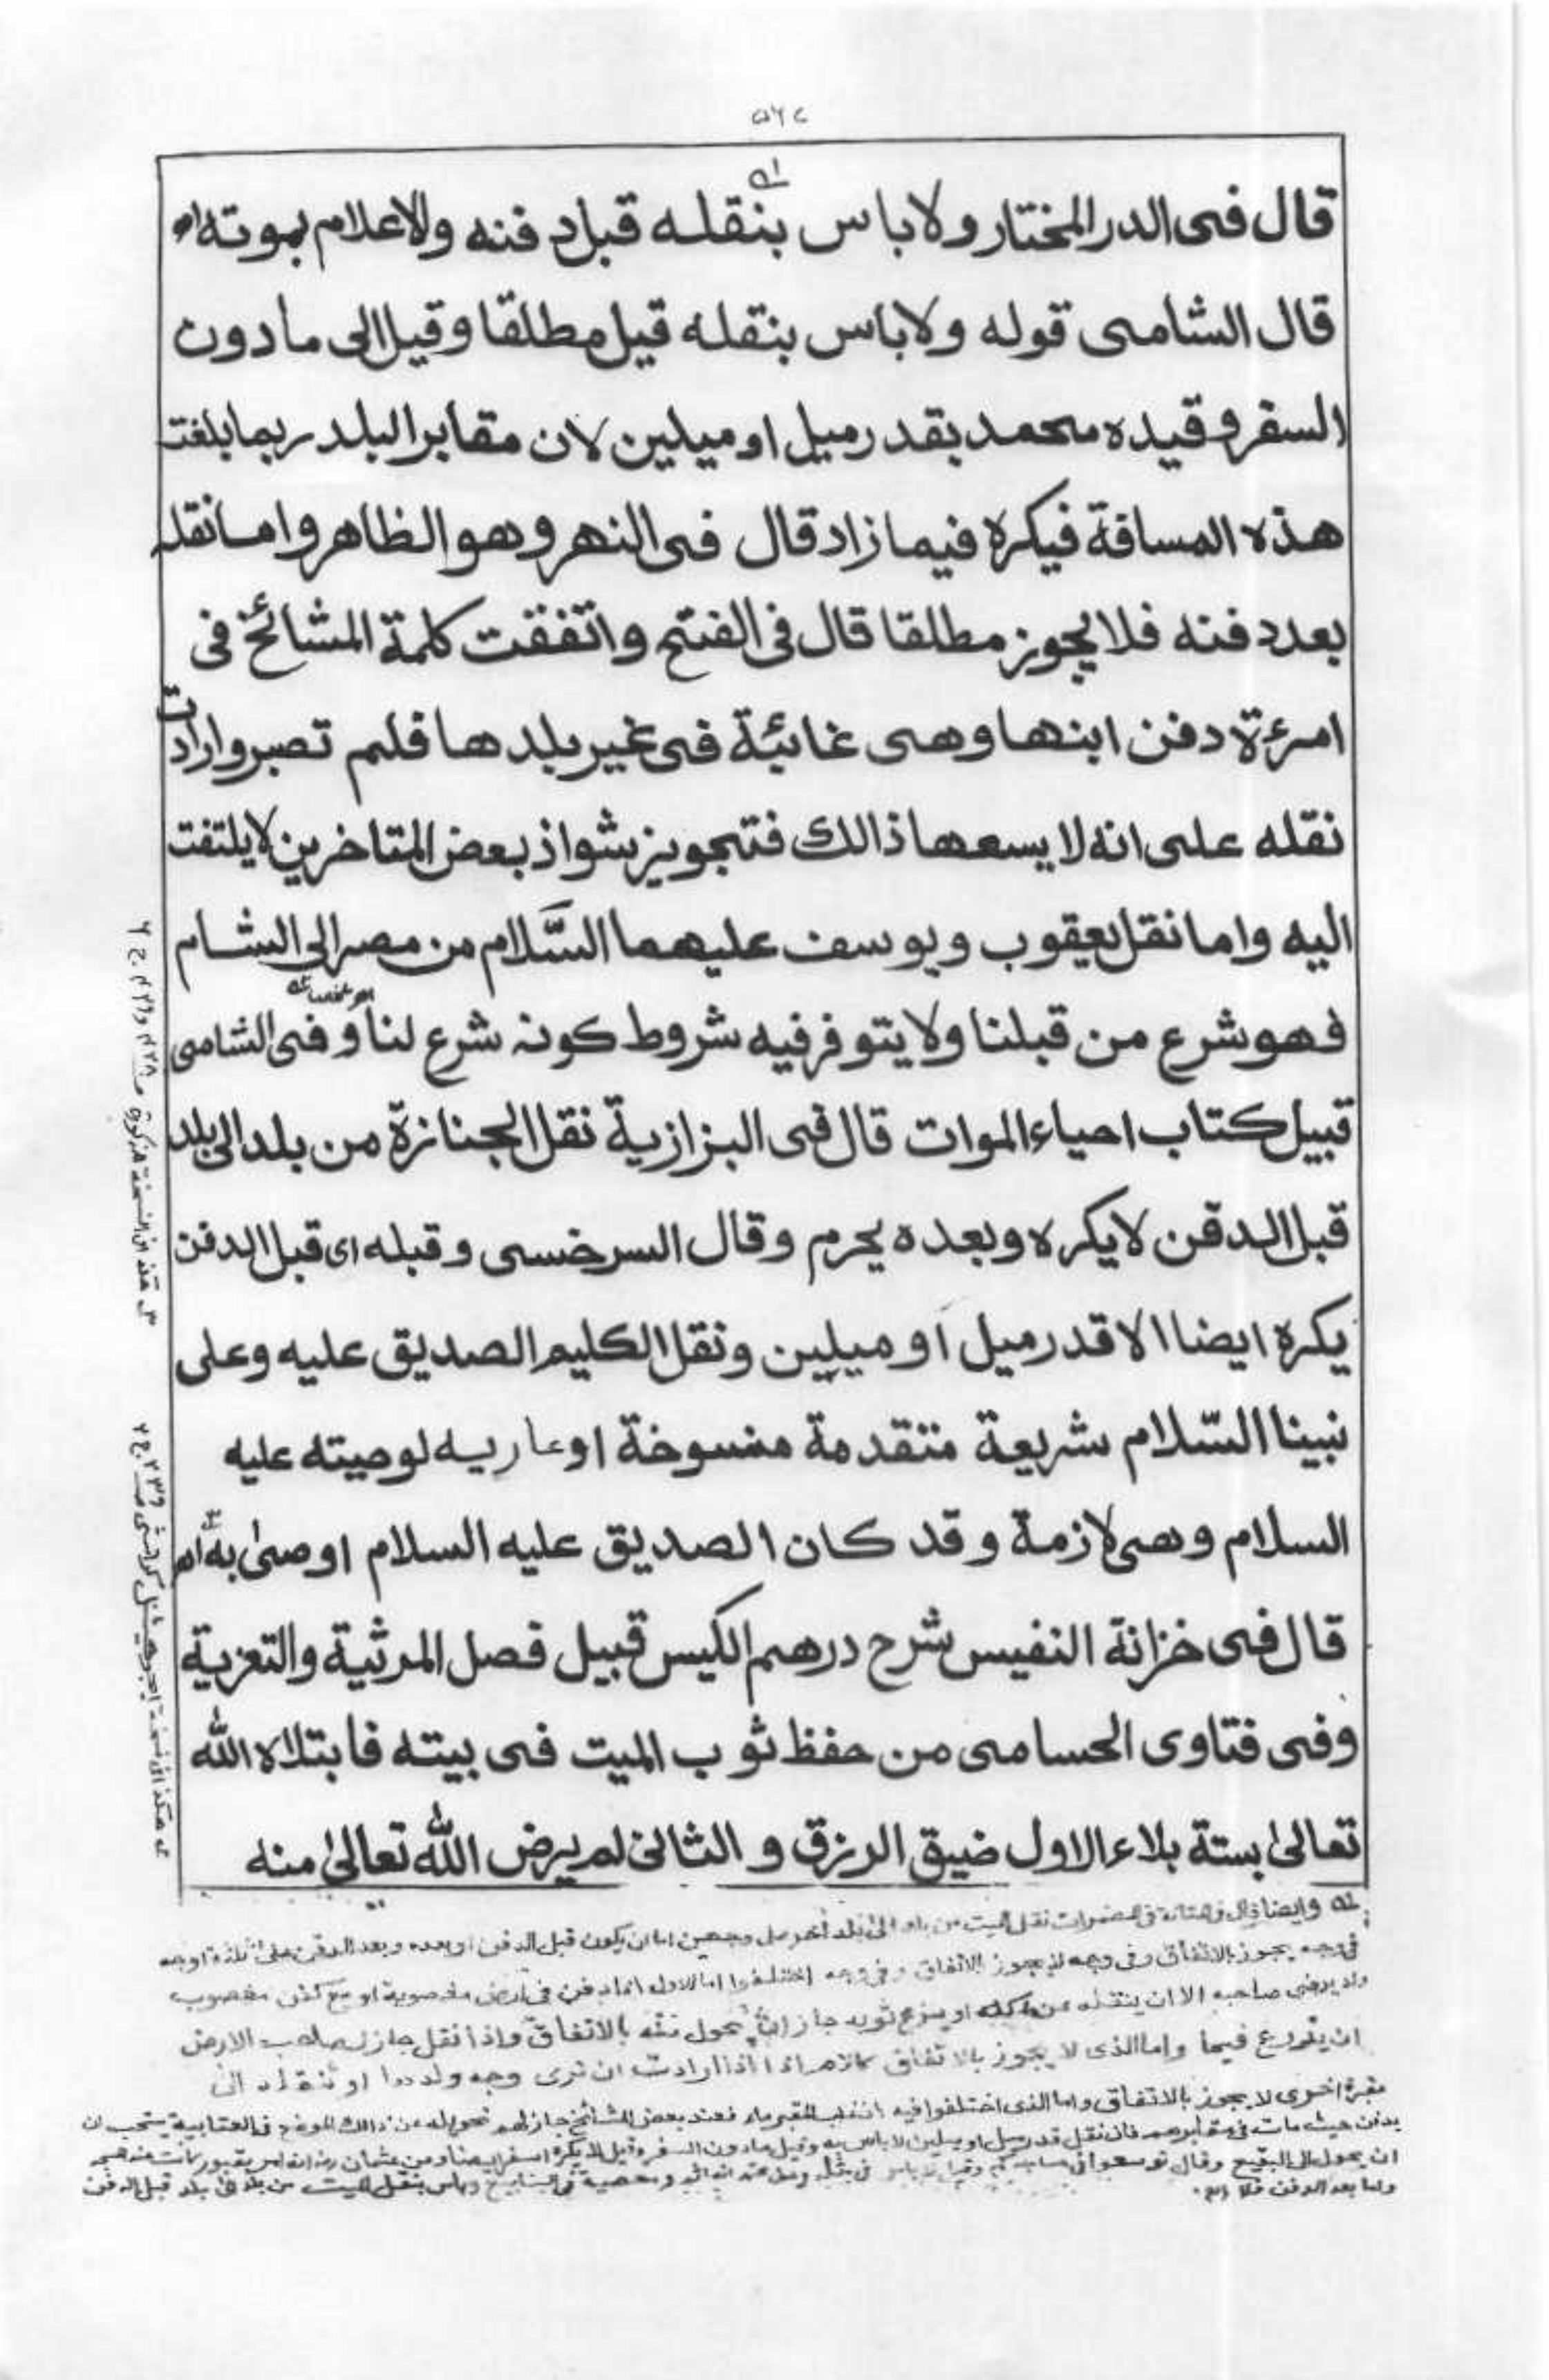 قال فى الدر المختار ولا باس بنقله قبل دفنه والاعلام بموته اھ
قال الشامى قوله ولا باس بنقله قيل مطلقا وقيل الى ما دون
السفر وقيده محمد بقدر ميل او ميلين لان مقابر البلد ربما بلغت
هذه المسافة فيكره فيما زاد قال فى النهر وهو الظاهر واما نقله
بعد دفنه فلا يجوز مطلقا قال فى الفتح واتفقت كلمة المشائخ فى
امرءة دفن ابنها وهى غائبة فى غير بلدها فلم تصبر وارادت
نقله على انه لا يسعها ذالك فتجويز شواذ بعض المتاخرين لا يلتفت
اليه واما نقل يعقوب ويوسف عليهما السَّلام من مصر الى الشام
فهو شرع من قبلنا ولا يتوفر فيه شروط كونه شرع لنا اھ ملخصا وفى الشامى
قبيل كتاب احياء الموات قال فى البزازية نقل الجنازة من بلد الى بلد
قبل الدفن لا يكره وبعده يحرم وقال السرخسى وقبله اى قبل الدفن
يكره ايضا الا قدر ميل او ميلين ونقل الكليم الصديق عليه وعلى
نبينا السّلام شريعة متقدمة منسوخة او عاريه لوصيته عليه
السلام وهى لازمة وقد كان الصديق عليه السلام اوصىٰ به اھ
قال فى خزانة النفيس شرح درهم الكيس قبيل فصل المرثية والتعزية
وفى فتاوى الحسامى من حفظ ثوب الميت فى بيته فابتلاه الله
تعالىٰ بستة بلاء الاول ضيق الرزق و الثانى لم يرض الله تعالىٰ منه
له وايضا قال فى المضمرات نقل الميت من بلد الى بلد آخر على وجهين اما ان يكون قبل الدفن او بعده وبعد الدفن على ثلثة اوجه
فى وجه يجوز بالاتفاق وفى وجه لا يجوز بالاتفاق وفى وجه اختلفوا اما الاول اذا دفن فى ارض مغصوبة او مع كفن مغصوب
ولا يرضى صاحبه الا ان ينقله عن ملكه او ينزع ثوبه جاز ان يحول منه بالاتفاق واذا نقل جاز لصاحب الارض
ان يزرع فيها واما الذى لا يجوز بالاتفاق كالام اذا ارادت ان ترى وجه ولدها او تنقله الى
مقبرة اخرى لا يجوز بالاتفاق واما الذى اختلفوا فيه اذا غلب المقبر ماء فعند بعض المشائخ جاز لهم تحويله عن ذالك الموضع فى العتابية يستحب ان
يدفن حيث مات فى مقابرهم فان نقل قدر ميل او ميلين لا باس به وقيل مادون السفر وقيل لا يكره السفر ايضا وعن عثمان انه امر بقبور كانت عند المسجد
ان يحول الى البقيع وقال توسعوا فى مساجدكم
بنقل الميت من بلد الى بلد قبل الدفن
واما بعد الدفن فلا